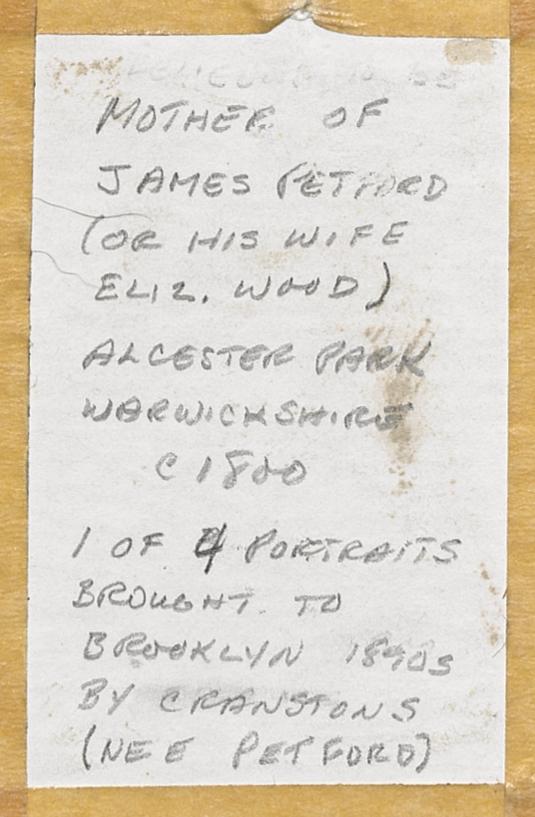 BELIEVED TO BE
MOTHER OF
JAMES PETFORD
(OR HIS WIFE
ELIZ. WOOD)
ALCESTER PARK
WARWICKSHIRE
C 1800
1 OF 4 PORTRAITS
BROUGHT TO
BROOKLYN 1890S
BY CRANSTONS
(NEE PETFORD)